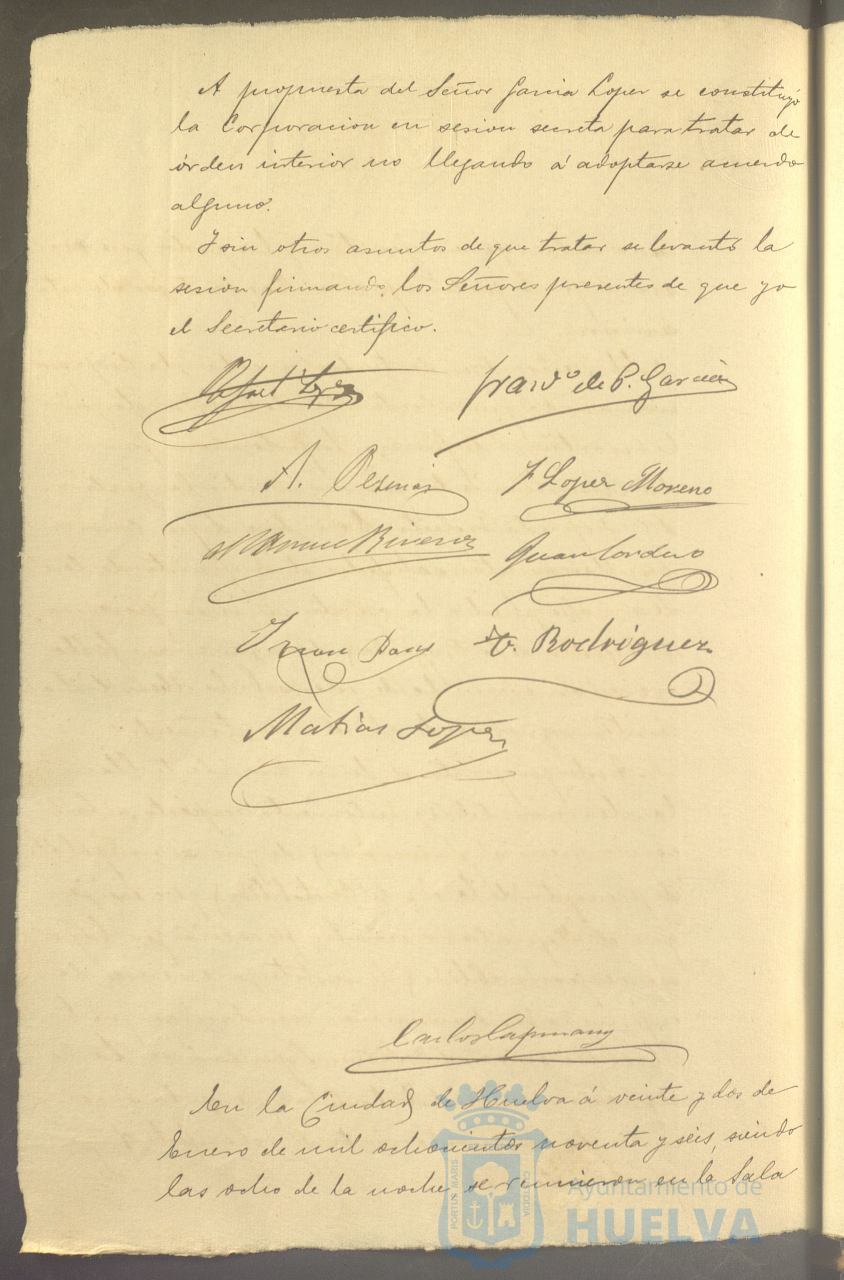 A propuesta del Señor Garcia Lopez se constituyó
la Corporacion en sesion secreta para tratar de
órden interior no llegando á adoptarse acuerdo
alguno.
Y sin otros asuntos de que tratar se levantó la
sesion firmando los Señores presentes de que yo
el Secretario certifico.
Rafael Lopez Franco de P. Garcia
A. F Lopez Moreno
Juan Cordero
Rodriguez
Matias Lopez
Carlos Capmany
En la Ciudad de Huelva á veinte y dos de
Enero de mil ochocientos noventa y seis, siendo
las ocho de la noche se reunieron en la Sala
PORTUS MARIS CUSTODIA
Ayuntamiento de
HUELVA